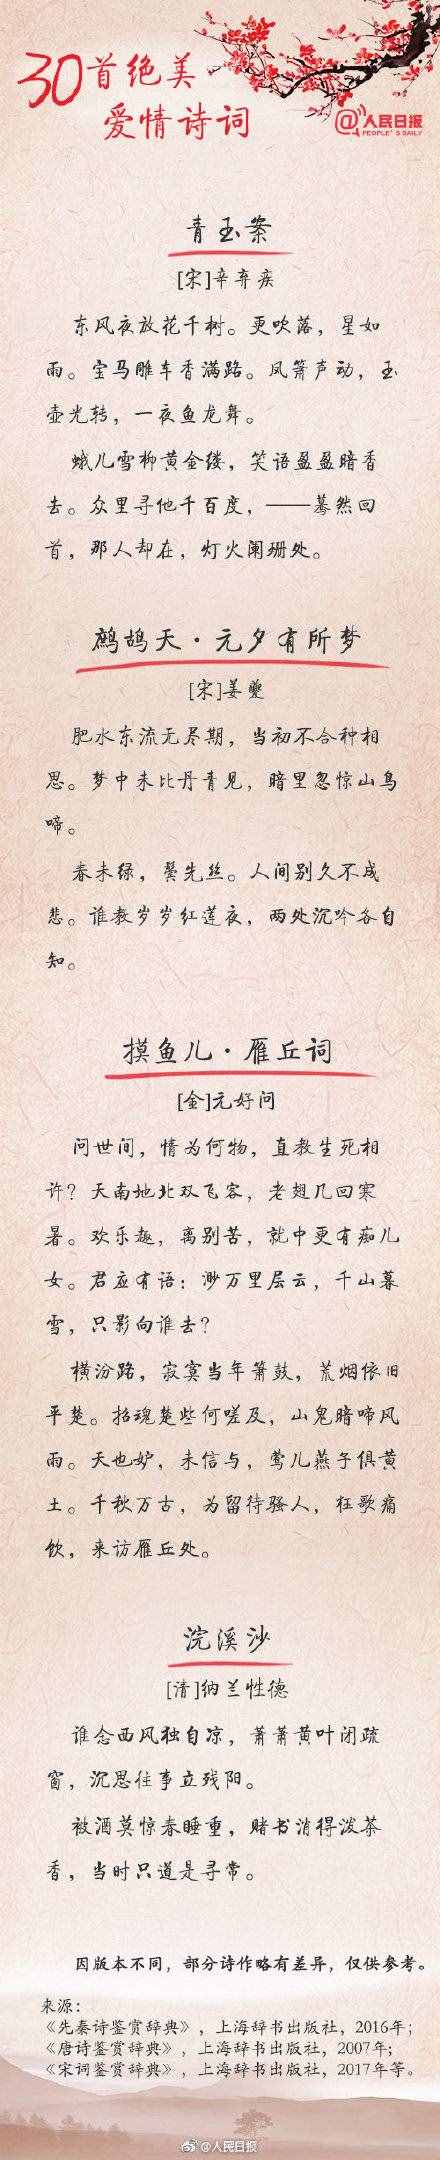 30首绝美
爱情诗词
@人民日报
PEOPLE'S DAILY
青玉案
[宋]辛弃疾
东风夜放花千树。更吹落，星如
雨。宝马雕车香满路。凤箫声动，玉
壶光转，一夜鱼龙舞。
蛾儿雪柳黄金缕，笑语盈盈暗香
去。众里寻他千百度，——蓦然回
首，那人却在，灯火阑珊处。
鹧鸪天·元夕有所梦
[宋]姜夔
肥水东流无尽期，当初不合种相
思。梦中未比丹青见，暗里忽惊山鸟
啼。
春未绿，鬓先丝。人间别久不成
悲。谁教岁岁红莲夜，两处沉吟各自
知。
摸鱼儿·雁丘词
[金]元好问
问世间，情为何物，直教生死相
许？天南地北双飞客，老翅几回寒
暑。欢乐趣，离别苦，就中更有痴儿
女。君应有语：渺万里层云，千山暮
雪，只影向谁去？
横汾路，寂寞当年箫鼓，荒烟依旧
平楚。招魂楚些何嗟及，山鬼暗啼风
雨。天也妒，未信与，莺儿燕子俱黄
土。千秋万古，为留待骚人，狂歌痛
饮，来访雁丘处。
浣溪沙
[清]纳兰性德
谁念西风独自凉，萧萧黄叶闭疏
窗，沉思往事立残阳。
被酒莫惊春睡重，赌书消得泼茶
香，当时只道是寻常。
因版本不同，部分诗作略有差异，仅供参考。
来源：
《先秦诗鉴赏辞典》，上海辞书出版社，2016年；
《唐诗鉴赏辞典》，上海辞书出版社，2007年；
《宋词鉴赏辞典》，上海辞书出版社，2017年等。
@人民日报